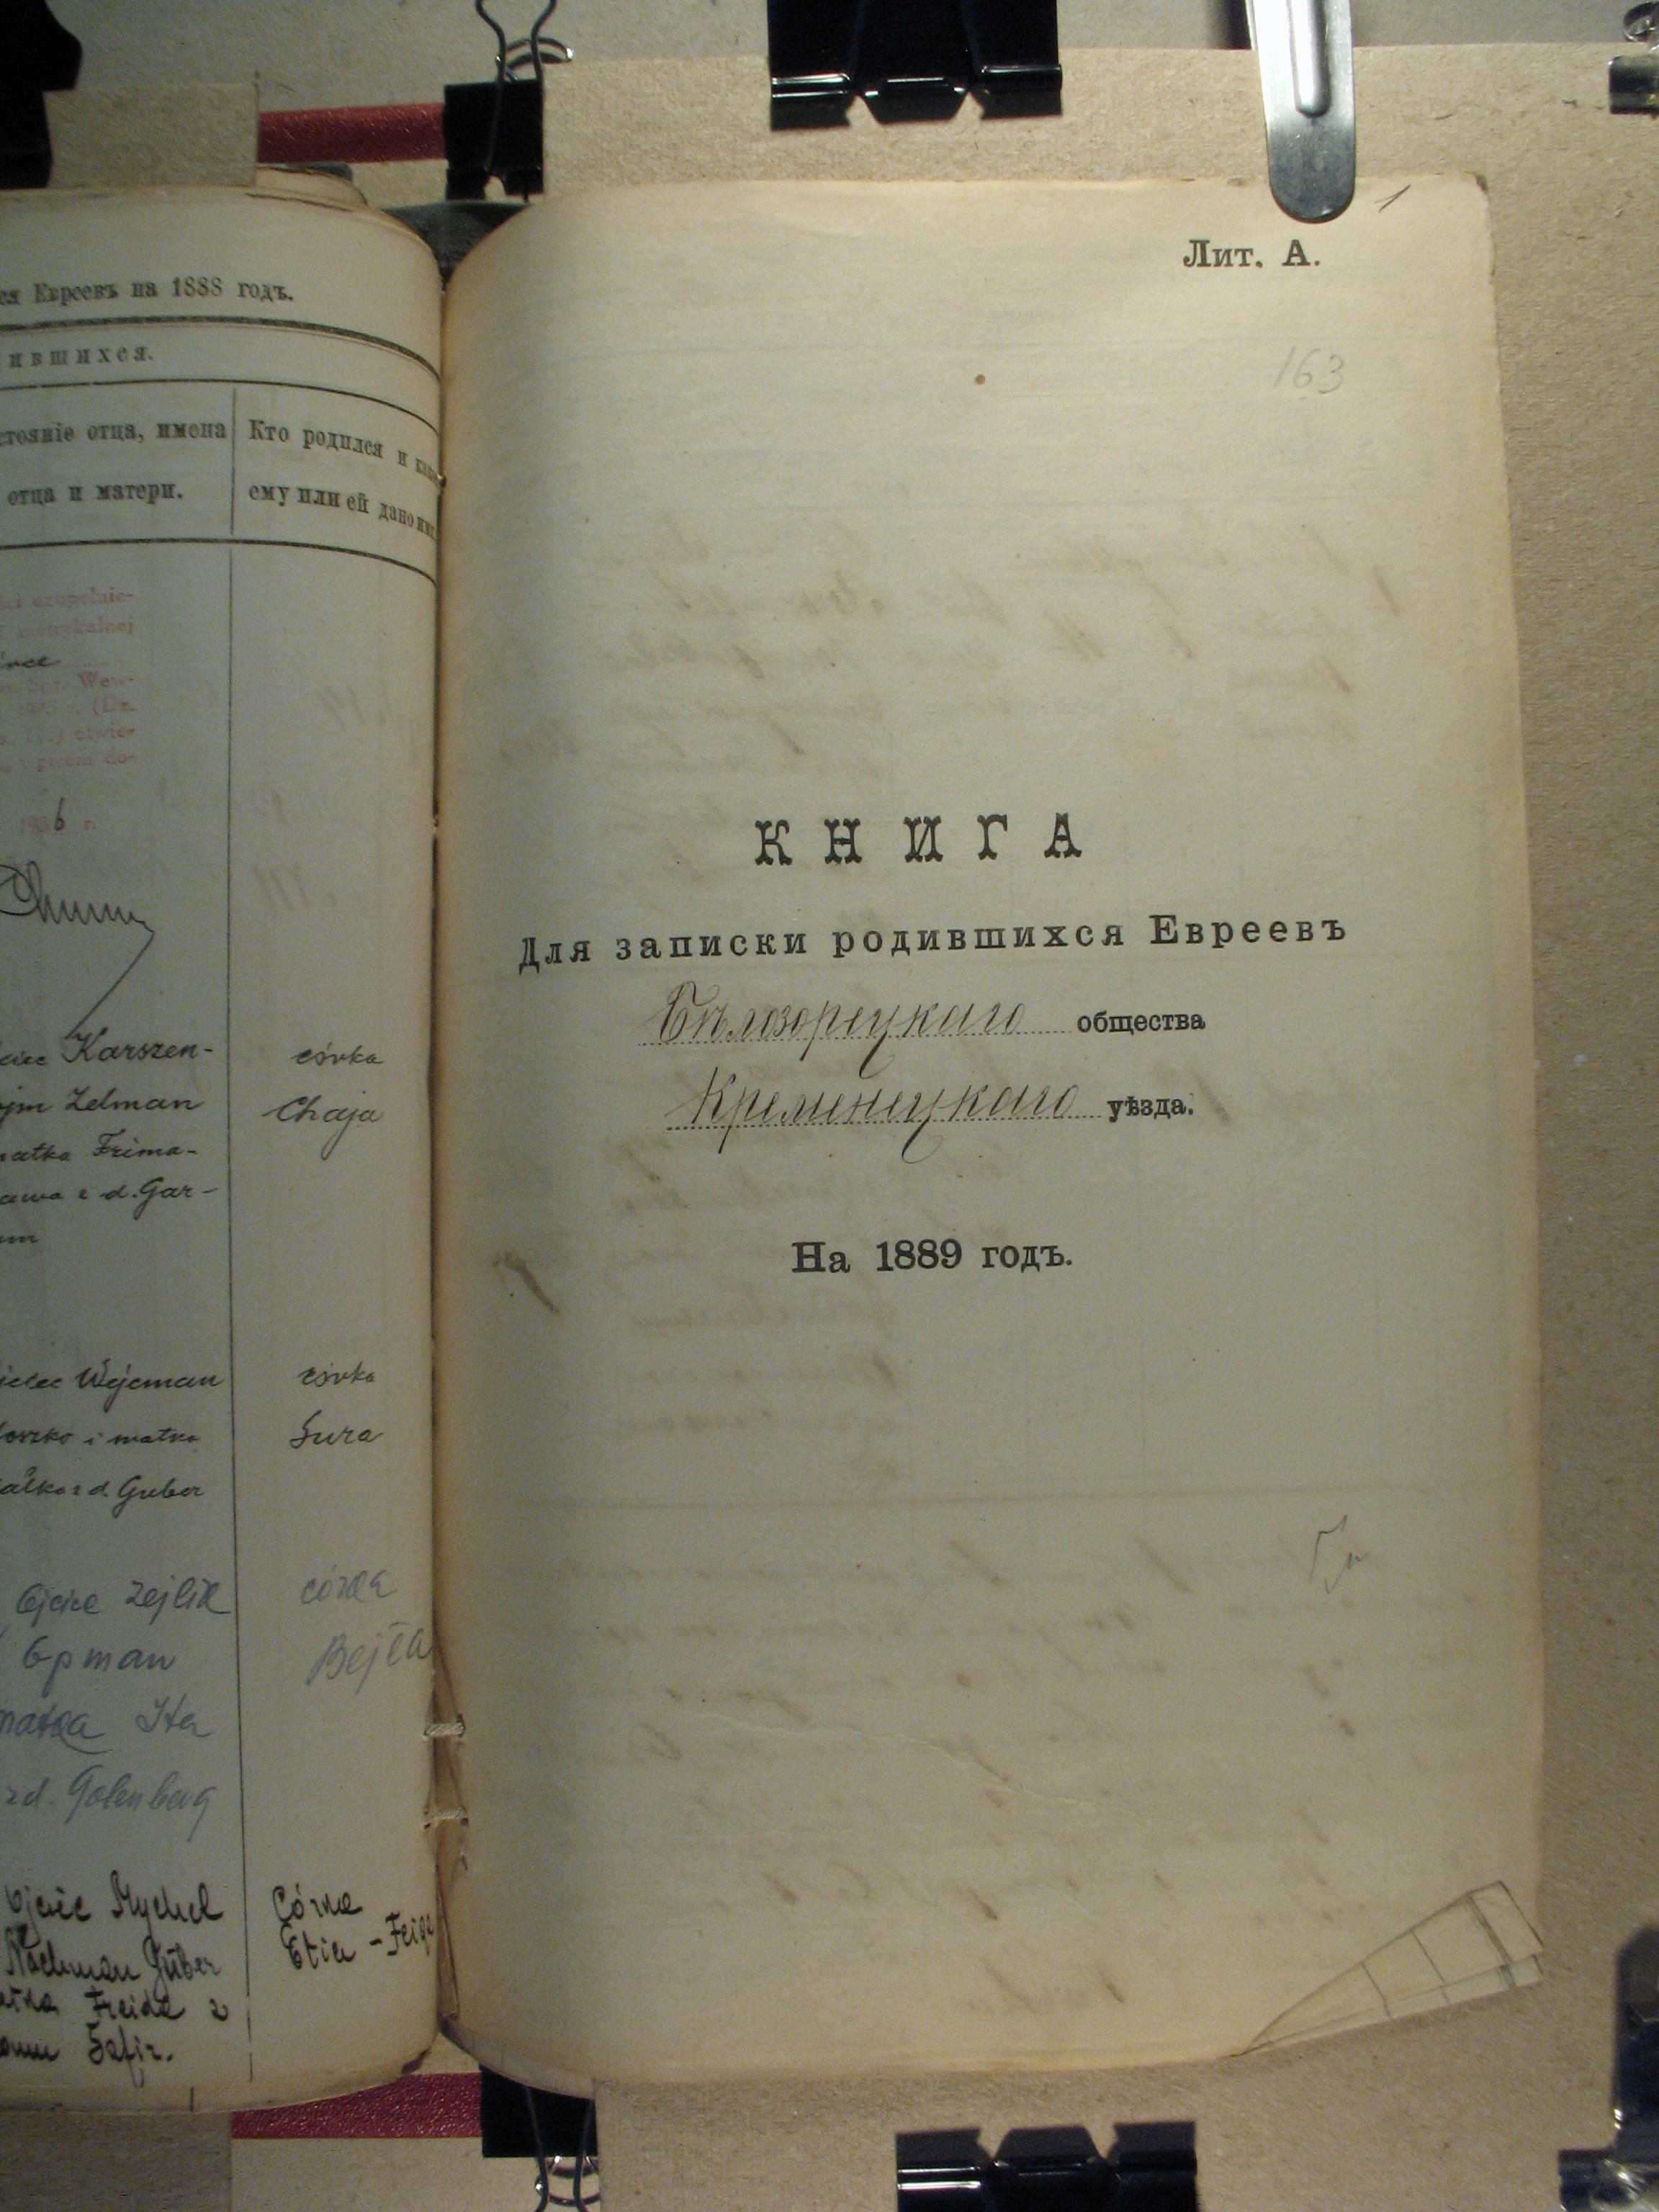 ся Евреевъ на 1888 годъ.
ившихся.
стояніе отца, имена
отца и матери.
Кто родился и
ему или ей дано
uzupełnie-
metrykalnej
Wew-
(Dz.
otwie-
do-
1936 r.
Karszen-
Zelman
matka Frima-
z d. Gar-
córka
Chaja
Wejcman
i matka
z d. Guber
córka
Sura
Ojciec Zejlik
Ерman
matka Ita
zd. Golenberg
córka
Bejla
Ojciec Mychel
Nachman Guber
Freida z
Safir.
Córka
Etia - Feiga
1
Лит. А.
163
КНИГА
Для записки родившихся Евреевъ
Бѣлозорецкаго общества
Кременецкаго уѣзда.
На 1889 годъ.